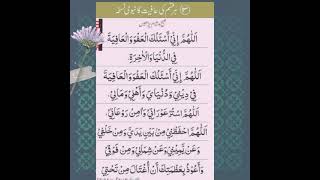 ہر قسم کی عافیت کا نبوی نسخہ
صبح و شام
اَللّٰهُمَّ اِنِّيْ اَسْئَلُكَ الْعَفْوَ وَالْعَافِيَةَ
فِي الدُّنْيَا وَالْاٰخِرَةِ
اَللّٰهُمَّ اِنِّيْ اَسْئَلُكَ الْعَفْوَ وَالْعَافِيَةَ
فِيْ دِيْنِيْ وَدُنْيَايَ وَاَهْلِيْ وَمَالِيْ
اَللّٰهُمَّ اسْتُرْ عَوْرَاتِيْ وَاٰمِنْ رَوْعَاتِيْ
اَللّٰهُمَّ احْفَظْنِيْ مِنْ بَيْنِ يَدَيَّ وَمِنْ خَلْفِيْ
وَعَنْ يَّمِيْنِيْ وَعَنْ شِمَالِيْ وَمِنْ فَوْقِيْ
وَاَعُوْذُ بِعَظَمَتِكَ اَنْ اُغْتَالَ مِنْ تَحْتِيْ